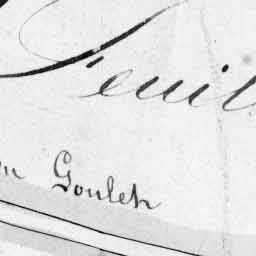 Feuil
n Gouleh